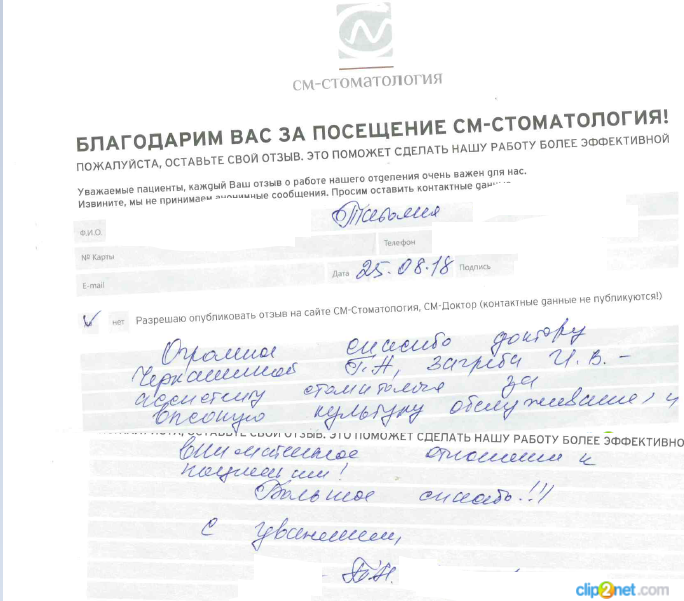 СМ-СТОМАТОЛОГИЯ
БЛАГОДАРИМ ВАС ЗА ПОСЕЩЕНИЕ СМ-СТОМАТОЛОГИЯ!
ПОЖАЛУЙСТА, ОСТАВЬТЕ СВОЙ ОТЗЫВ. ЭТО ПОМОЖЕТ СДЕЛАТЬ НАШУ РАБОТУ БОЛЕЕ ЭФФЕКТИВНОЙ
Уважаемые пациенты, каждый Ваш отзыв о работе нашего отделения очень важен для нас.
Извините, мы не принимаем анонимные сообщения. Просим оставить контактные
Ф.И.О.
№ Карты Телефон
E-mail Дата 25.08.18 Подпись
нет Разрешаю опубликовать отзыв на сайте СМ-Стоматология, СМ-Доктор (контактные данные не публикуются!)
Огромное спасибо доктору
Г.А, Загреба И.В. –
ассистенту стоматолога за
высокую культуру обслуживания, и
ОСТАВЬТЕ СВОЙ ОТЗЫВ. ЭТО ПОМОЖЕТ СДЕЛАТЬ НАШУ РАБОТУ БОЛЕЕ ЭФФЕКТИВНО
внимательное отношение к
пациентам!
Большое спасибо!!!
С уважением,
clip2net.com